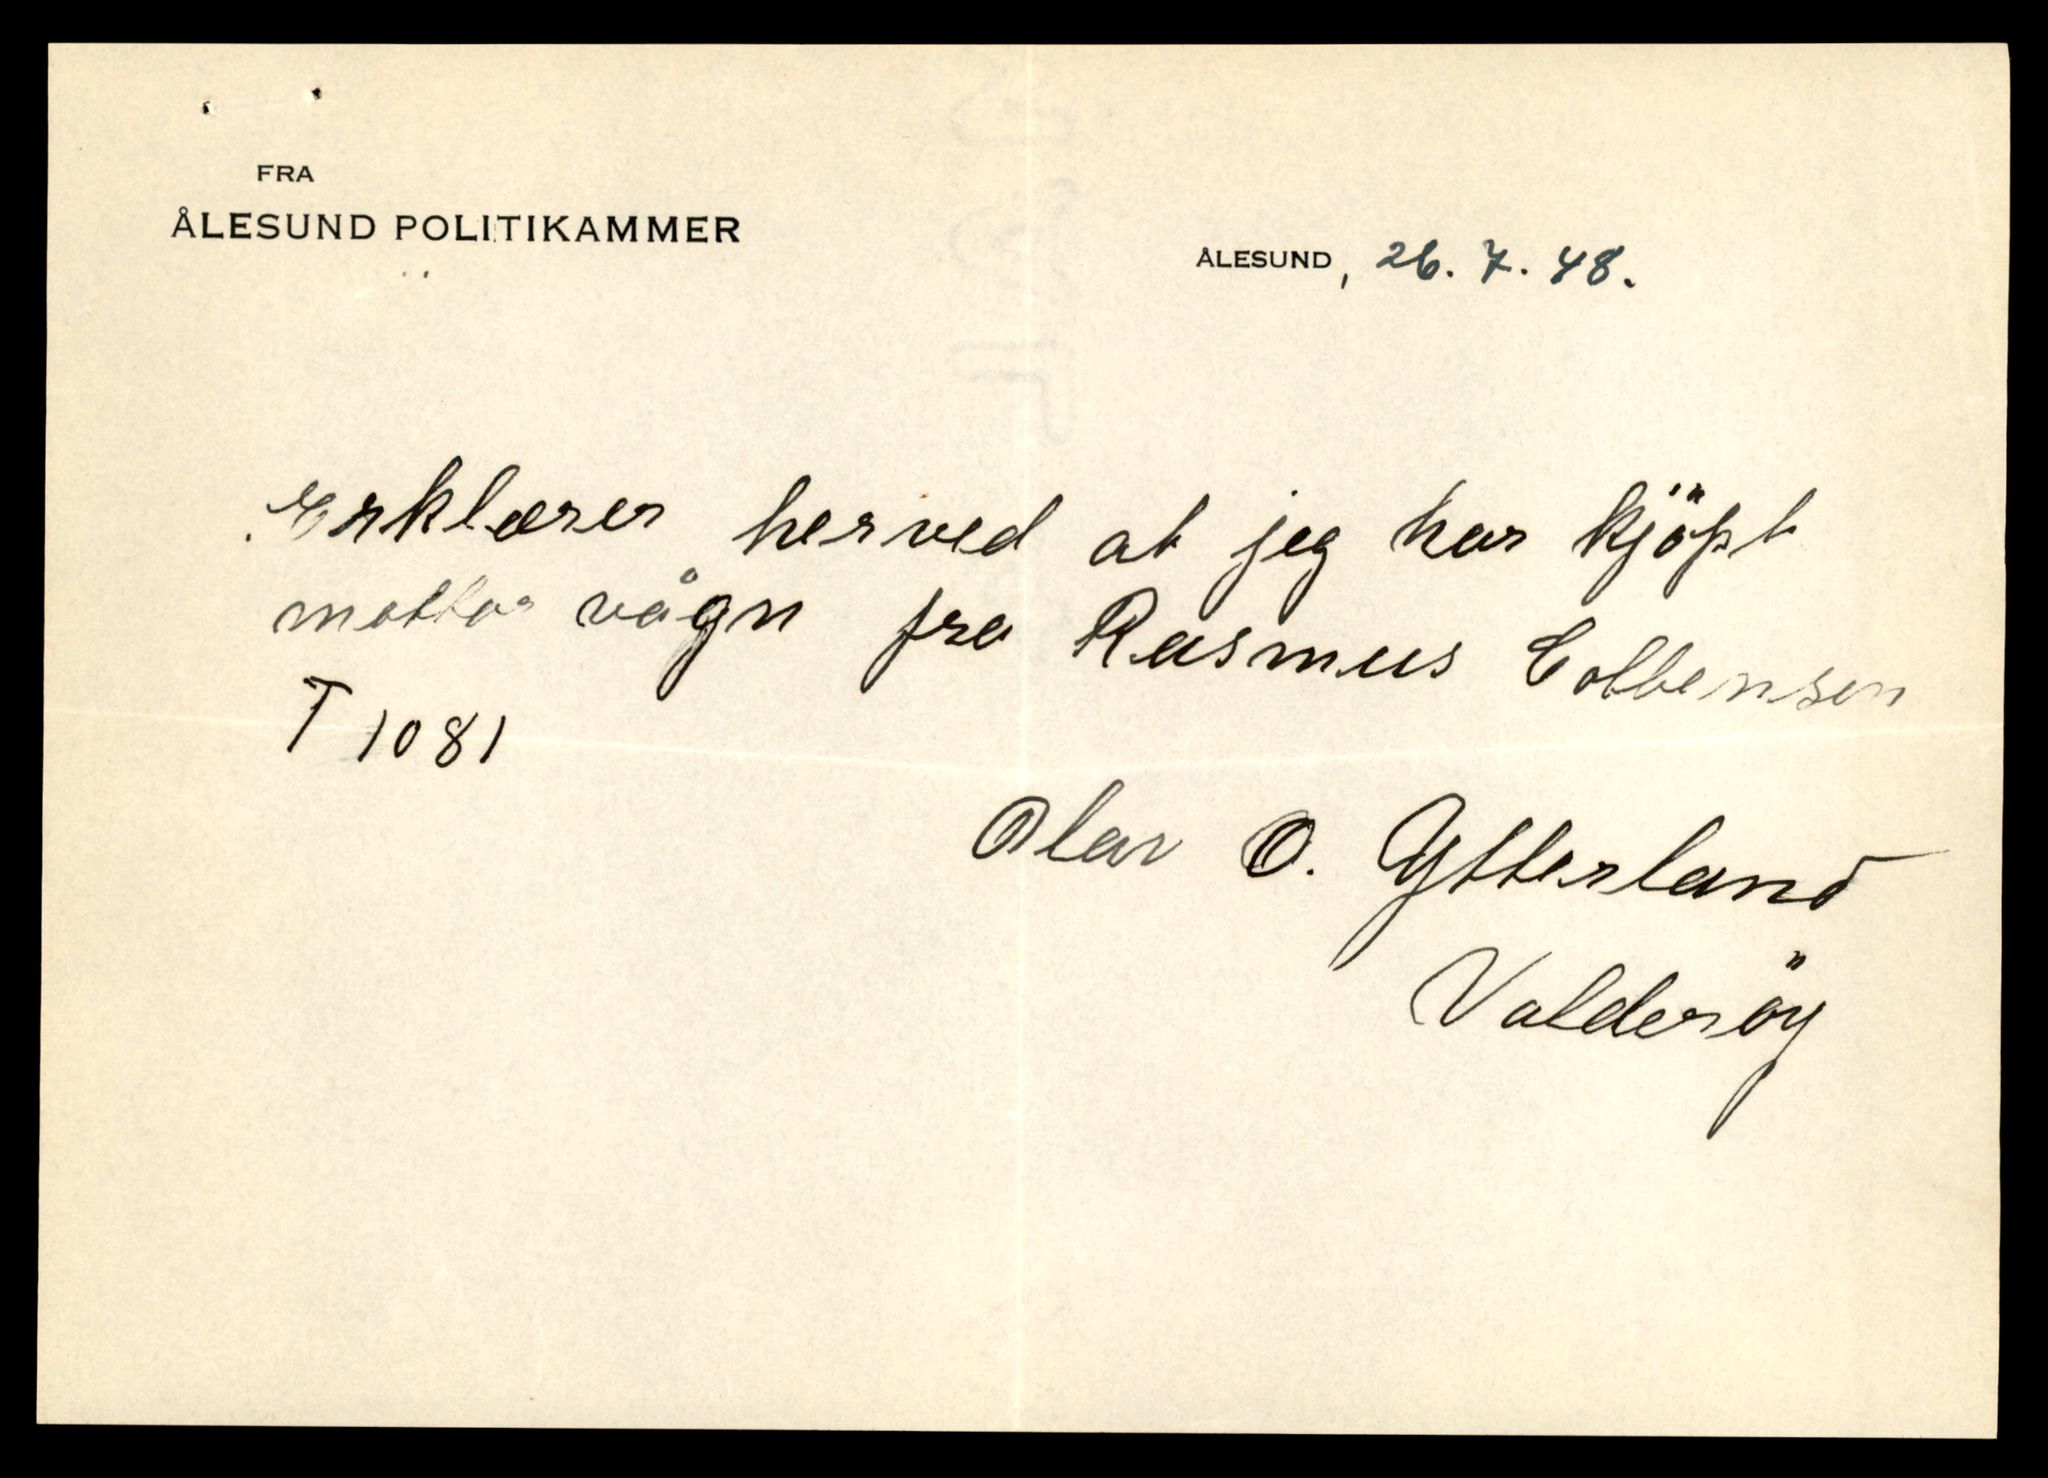 FRA
ÅLESUND POLITIKAMMER
ÅLESUND, 26.7.48.
Erklærer herved at jeg har kjöpt
mottor vågn fra Rasmus
T 1081
Olav O. Ytterland
Valderöy